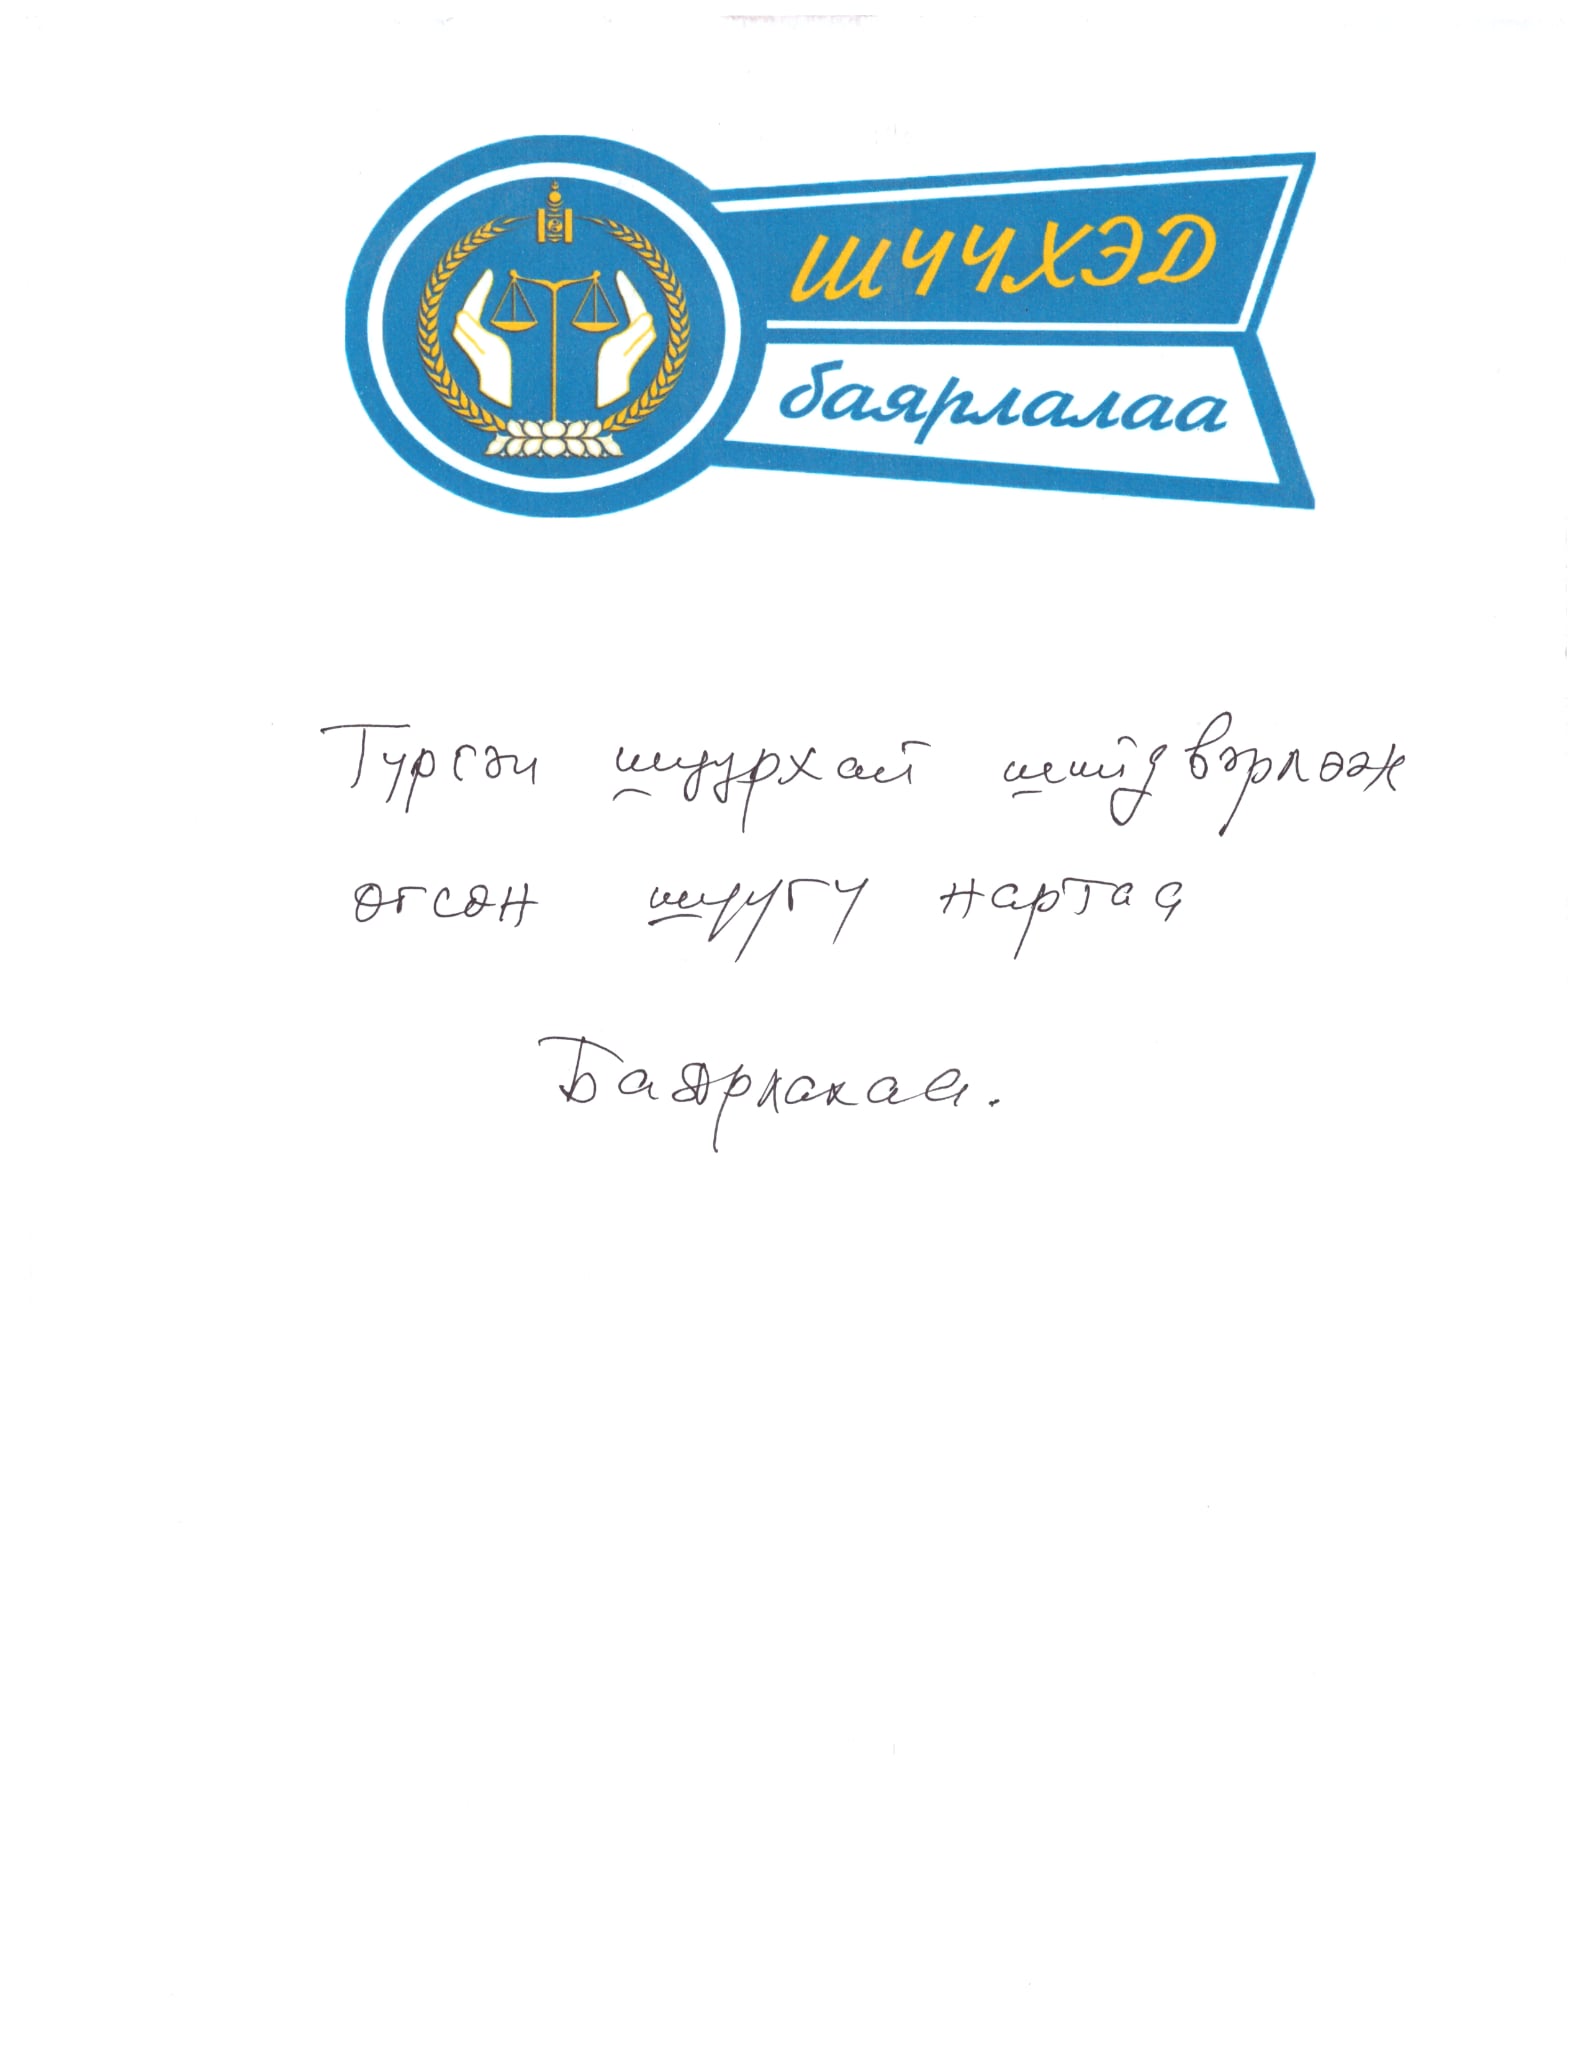 ШҮҮХЭД
баярлалаа
Түргэн шуурхай шийдвэрлээж
өгсөн шүүгч нартаа
Баярлалаа.